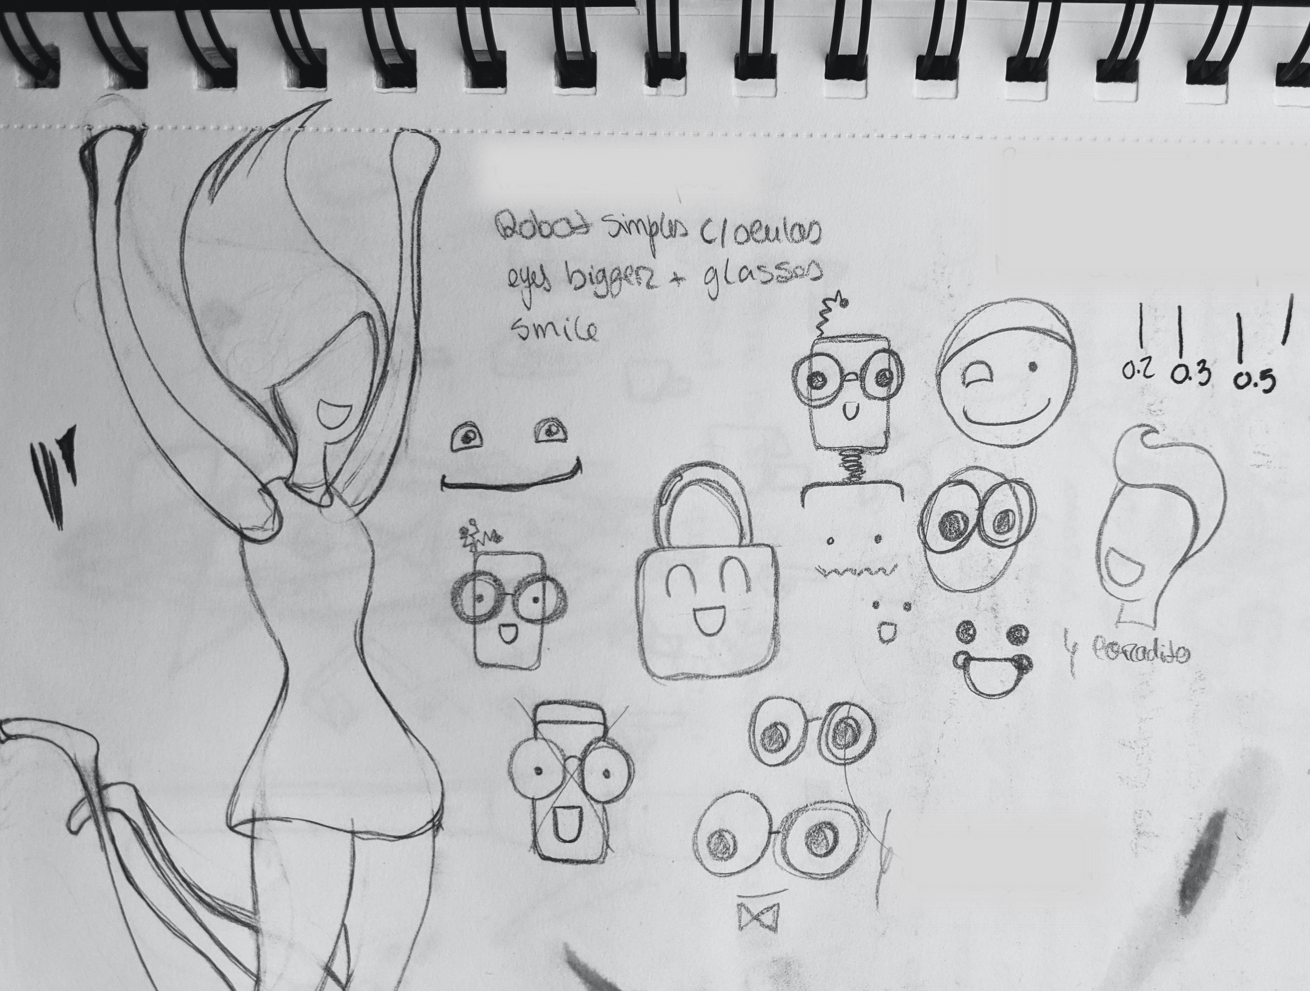 Robot simples c/oculos
eyes biggerz + glasses
smile
0.2 0.3 0.5